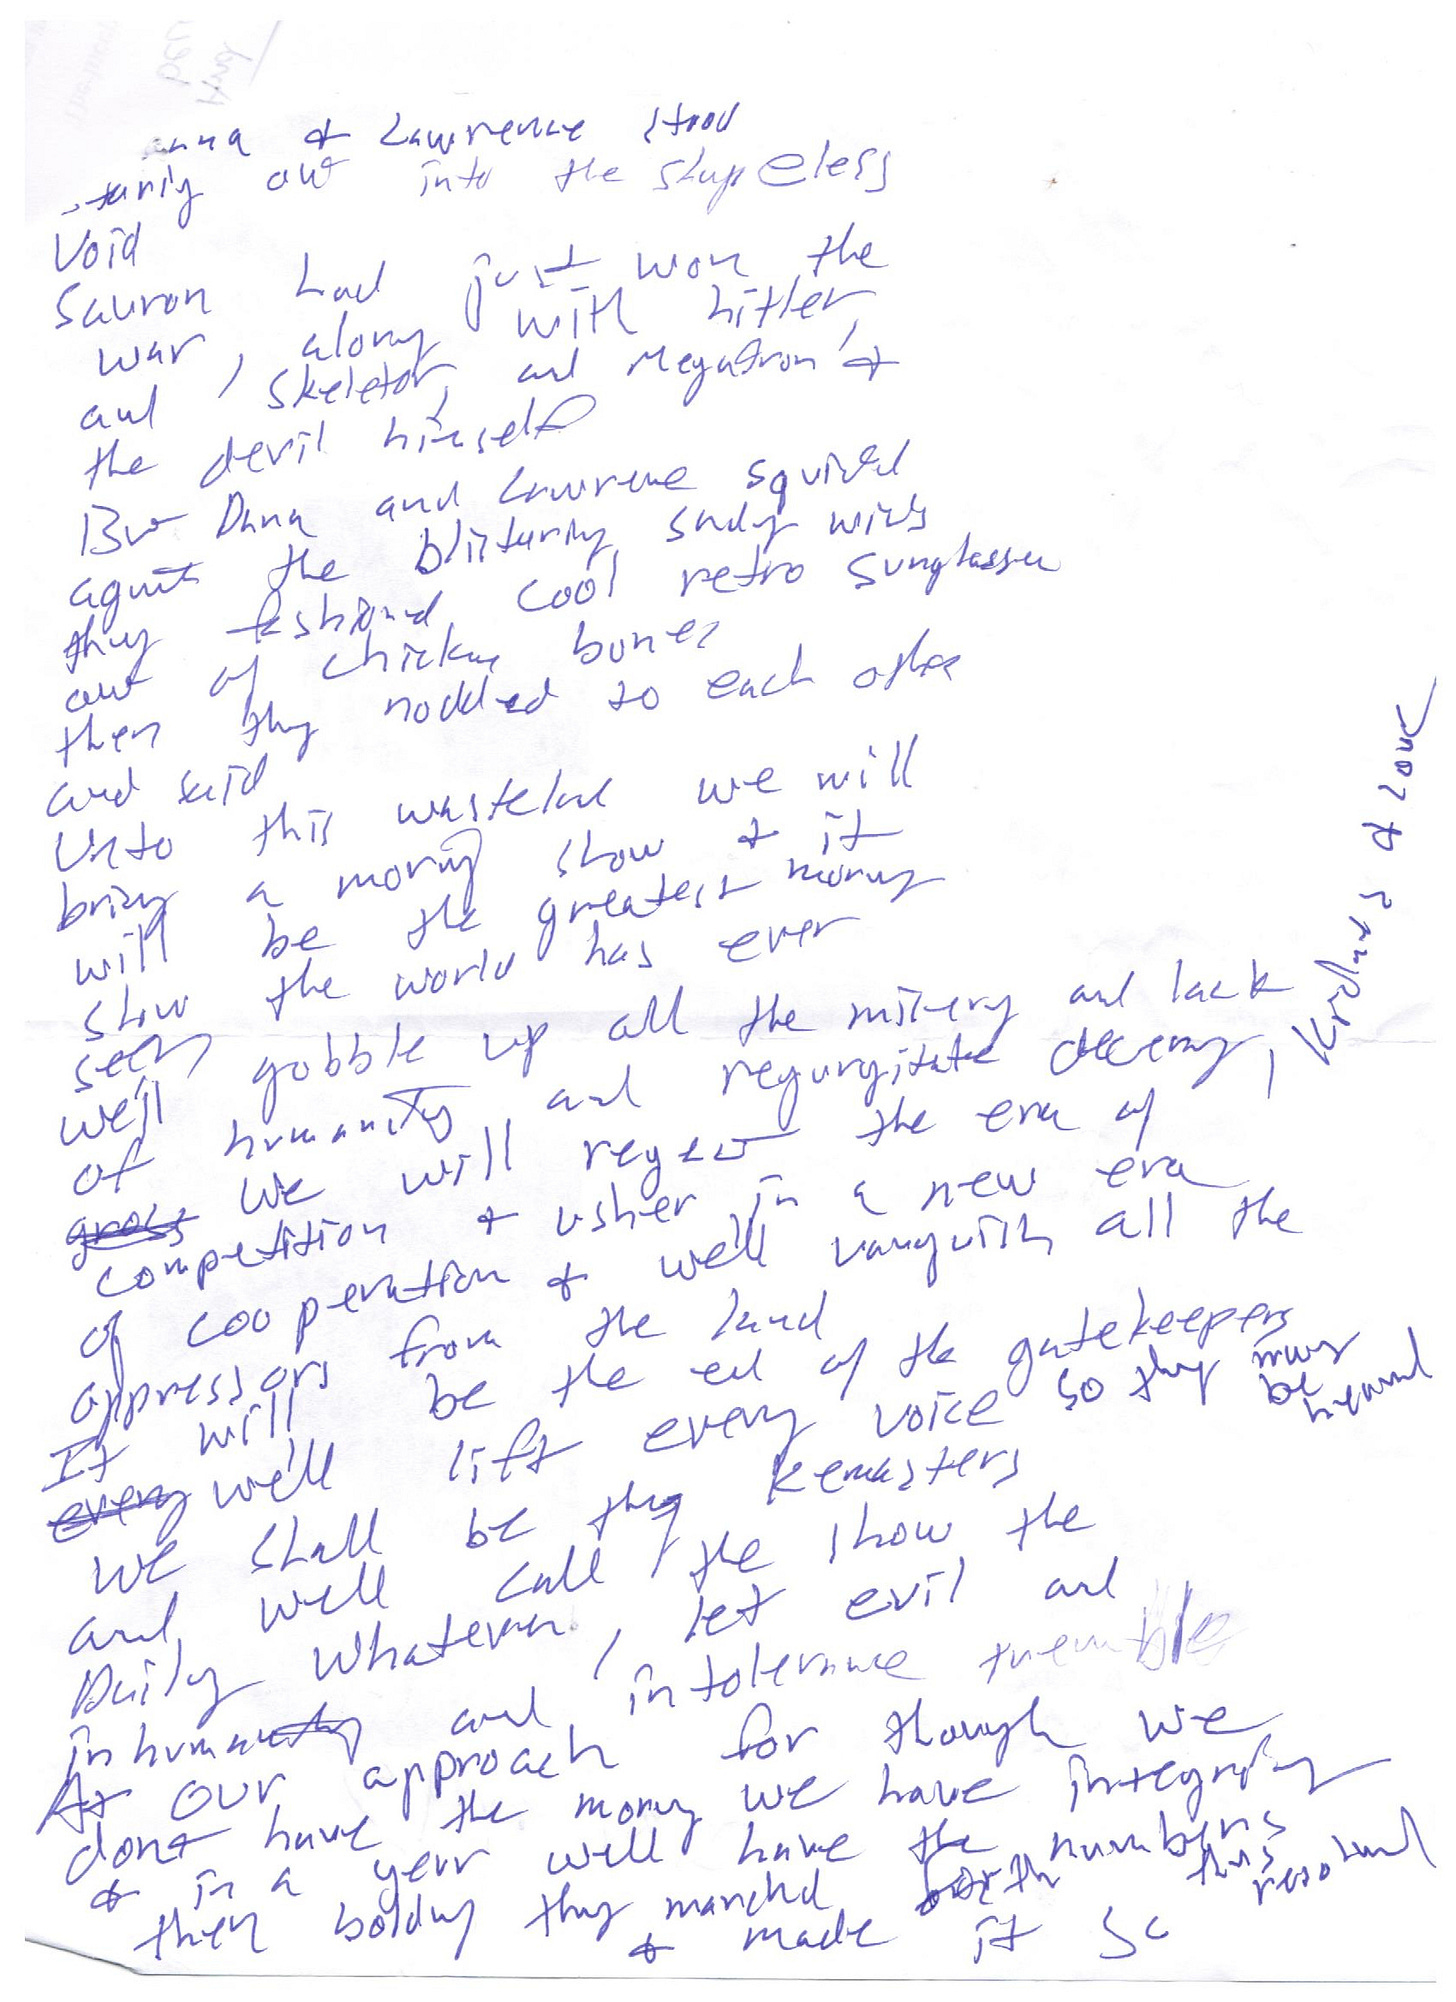 & Lawrence stood
out into the shapeless
Void
Sauron had just won the
war, along with hitler,
and skeletor, and Megatron &
the devil himself
But Dana and Lawrence squinted
against the blistering, sandy winds
they fashioned cool retro sunglasses
out of chicken bones
then they nodded to each other
and said
Unto this wasteland we will
bring a morning show & it
will be the greatest morning
show the world has ever
seen
we'll gobble up all the misery and lack
of humanity and regurgitate decency, kindness & love
gross we will reject the era of
competition & usher in a new era
of cooperation & we'll vanquish all the
oppressors from the land
It will be the end of the gatekeepers
every we'll lift every voice so they may be heard
We shall be they Remasters
and we'll call the show the
Daily Whatever, let evil and
inhumanity and intolerance tremble
At our approach for though we
dont have the money we have integrity
& in a year we'll have the numbers
then boldly they marched forth thus resolved
& made it so